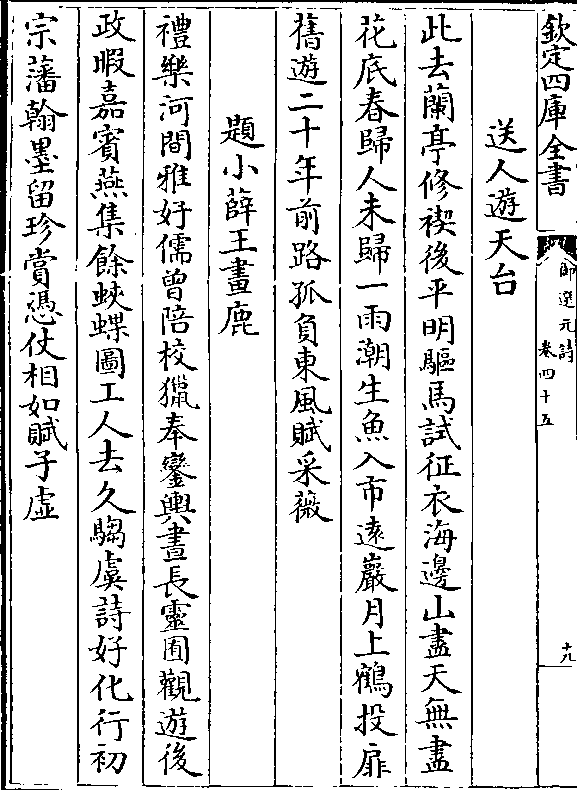 欽定四庫全書
御選元詩
卷四十五
十九
送人遊天台
此去蘭亭修禊後平明驅馬試征衣海邊山盡天無盡
花底春歸人未歸一雨潮生魚入市遠巖月上鶴投扉
舊遊二十年前路孤負東風賦采薇
題小薛王畫鹿
禮樂河間雅好儒曾陪校獵奉鑾輿晝長靈囿觀遊後
政暇嘉賓燕集餘蛺蝶圖工人去久騶虞詩好化行初
宗藩翰墨留珍賞憑仗相如賦子虛